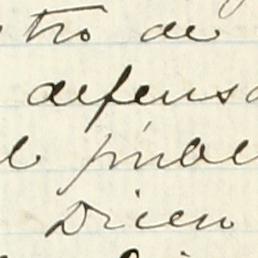 tro de
defensa
el puble
Dicen